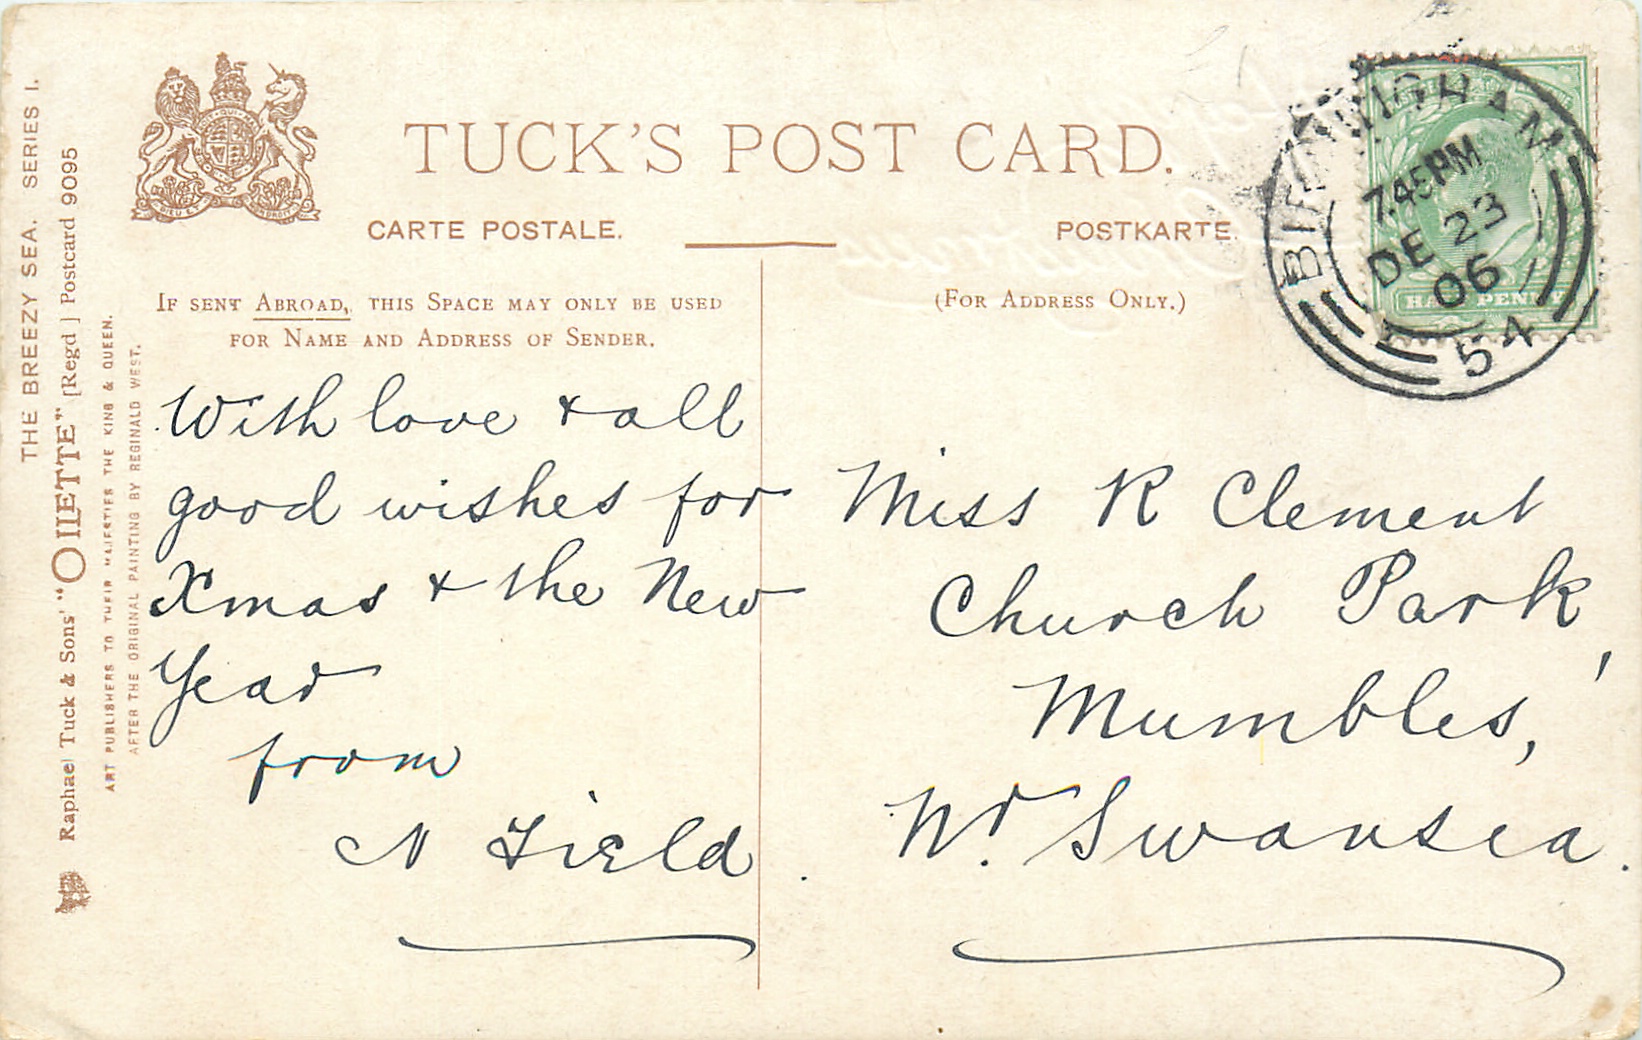 TUCK'S POST CARD.
CARTE POSTALE.
POSTKARTE.
IF SENT ABROAD, THIS SPACE MAY ONLY BE USED
FOR NAME AND ADDRESS OF SENDER.
(FOR ADDRESS ONLY.)
THE BREEZY SEA. SERIES I.
Raphael Tuck & Sons' "OILETTE" [Regd] Postcard 9095
ART PUBLISHERS TO THEIR MAJESTIES THE KING & QUEEN.
AFTER THE ORIGINAL PAINTING BY REGINALD WEST.
With love & all
good wishes for
Xmas & the New
Year
from
N Field.
Miss R Clement
Church Park,
Mumbles,
Nr. Swansea.
BIRMINGHAM
7.45PM
DE 23
06
54
HALFPENNY